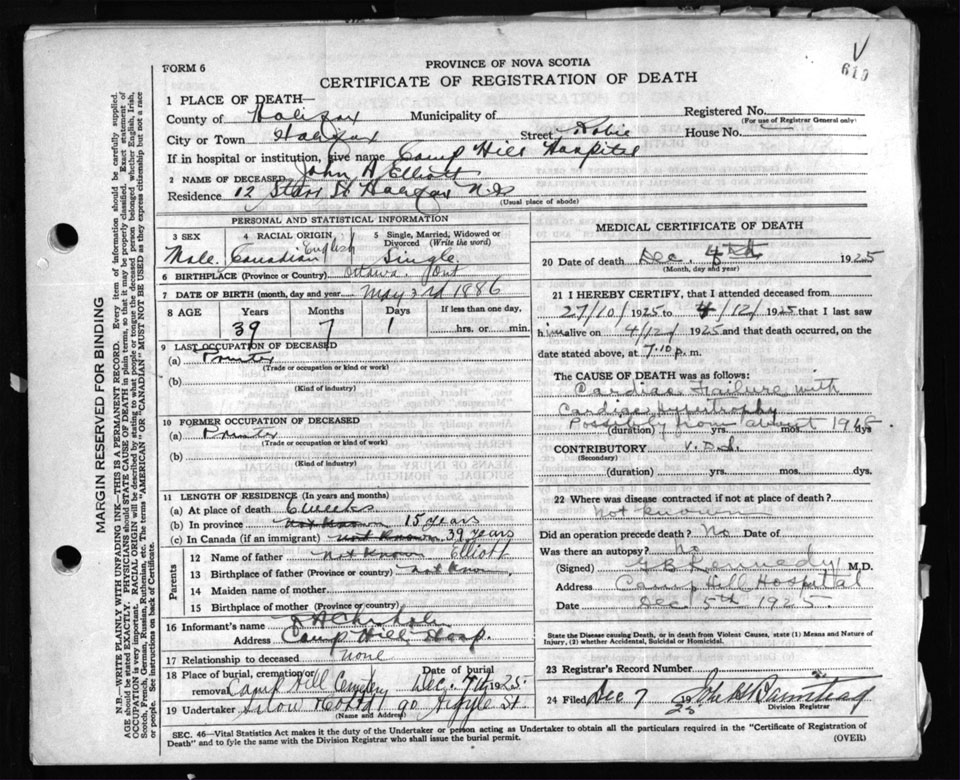 V
619
FORM 6
PROVINCE OF NOVA SCOTIA
CERTIFICATE OF REGISTRATION OF DEATH
1 PLACE OF DEATH—
County of Halifax Municipality of Registered No.
(For use of Registrar General only)
City or Town Halifax Street Robie House No.
If in hospital or institution, give name Camp Hill Hospital
2 NAME OF DECEASED John A Elliott
Residence 12 Starr St Halifax N.S
(Usual place of abode)
PERSONAL AND STATISTICAL INFORMATION
3 SEX 4 RACIAL ORIGIN 5 Single, Married, Widowed or Divorced (Write the word)
Male. Canadian English Single
6 BIRTHPLACE (Province or Country) Ottawa. Ont
7 DATE OF BIRTH (month, day and year) May 3rd 1886
8 AGE Years Months Days If less than one day,
39 7 1 hrs. or min.
9 LAST OCCUPATION OF DECEASED
(a) Printer
(Trade or occupation or kind or work)
(b)
(Kind of industry)
10 FORMER OCCUPATION OF DECEASED
(a) Printer
(Trade or occupation or kind of work)
(b)
(Kind of industry)
11 LENGTH OF RESIDENCE (In years and months)
(a) At place of death 6 weeks
(b) In province not known 15 years
(c) In Canada (if an immigrant) not known 39 years
Parents
12 Name of father not known Elliott
13 Birthplace of father (Province or country) not known,
14 Maiden name of mother
15 Birthplace of mother (Province or country)
16 Informant's name A Chisholm
Address Camp Hill Hosp.
17 Relationship to deceased none
18 Place of burial, cremation or removal Camp Hill Cemetery Date of burial Dec. 7th 1925
19 Undertaker Snow 90 Argyle St.
(Name and Address)
MEDICAL CERTIFICATE OF DEATH
20 Date of death Dec. 4th 1925
(Month, day and year)
21 I HEREBY CERTIFY, that I attended deceased from
27/10/1925 to 4/12/1925 that I last saw
him alive on 4/12/1925 and that death occurred, on the
date stated above, at 7.10 p.m.
The CAUSE OF DEATH was as follows:
Cardiac Failure with
Cardiac Hypertrophy
Possibly from August 1918
(duration) yrs. mos. dys
CONTRIBUTORY V.D.S.
(Secondary)
(duration) yrs. mos. dys.
22 Where was disease contracted if not at place of death?
Not known
Did an operation precede death? No Date of
Was there an autopsy? No
(Signed) G B Kennedy M.D.
Address Camp Hill Hospital
Date Dec 5th 1925.
State the Disease causing Death, or in death from Violent Causes, state (1) Means and Nature of
Injury, (2) whether Accidental, Suicidal or Homicidal.
23 Registrar's Record Number
24 Filed Dec 7 1925
Division Registrar
SEC. 46—Vital Statistics Act makes it the duty of the Undertaker or person acting as Undertaker to obtain all the particulars required in the "Certificate of Registration of
Death" and to fyle the same with the Division Registrar who shall issue the burial permit.
(OVER)
MARGIN RESERVED FOR BINDING
N.B.—WRITE PLAINLY WITH UNFADING INK—THIS IS A PERMANENT RECORD. Every item of information should be carefully supplied.
AGE should be stated EXACTLY. PHYSICIANS should STATE CAUSE OF DEATH in plain terms, so that it may be properly classified. Exact statement of
OCCUPATION is very important. RACIAL ORIGIN will be described by stating to what people or tongue the deceased person belonged whether English, Irish,
Scotch, French, German, Russian, Ruthenian, etc. The terms "AMERICAN" OR "CANADIAN" MUST NOT BE USED as they express citizenship but not a race
or people. See instructions on back of Certificate.